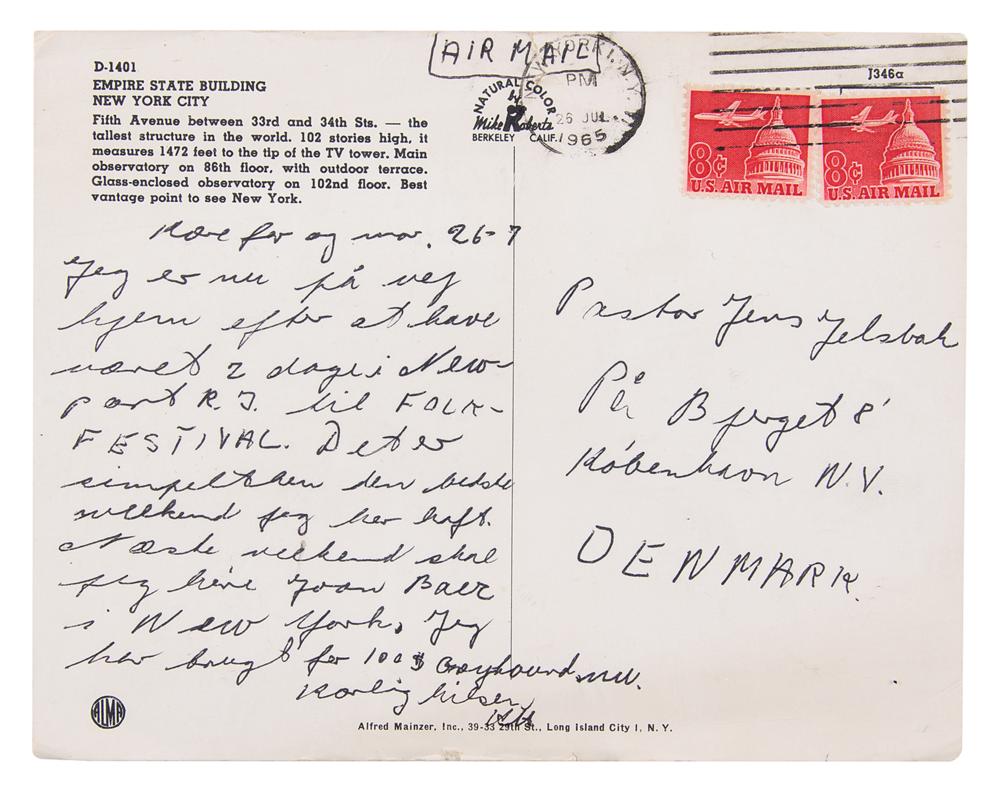 D-1401
EMPIRE STATE BUILDING
NEW YORK CITY
Fifth Avenue between 33rd and 34th Sts. — the
tallest structure in the world. 102 stories high, it
measures 1472 feet to the tip of the TV tower. Main
observatory on 86th floor, with outdoor terrace.
Glass-enclosed observatory on 102nd floor. Best
vantage point to see New York.
AIR MAIL
NATURAL COLOR
by
Mike Roberts
BERKELEY CALIF.
NEW YORK 1, N.Y.
PM
26 JUL
1965
J346a
8¢
U.S. AIR MAIL
8¢
U.S. AIR MAIL
Kære far og mor. 26-7
Jeg er nu på vej
hjem efter at have
været 2 dage i New-
port R.I. til FOLK-
FESTIVAL. Det er
simpelthen den bedste
weekend jeg har haft.
Næste weekend skal
jeg höre Joan Baez
i New York. Jeg
har brugt for 100 $ Greyhound nu.
Kærlig hilsen
Pastor Jens Jelsbak
På Bjerget 8
København N.V.
DENMARK.
ALMA
Alfred Mainzer, Inc., 39-33 29th St., Long Island City 1, N. Y.